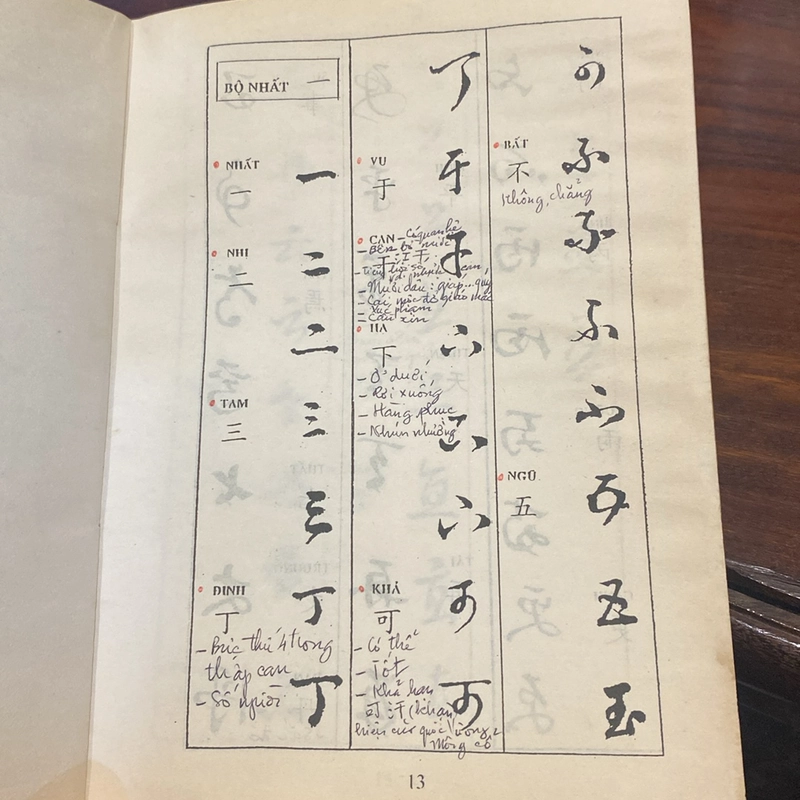 BỘ NHẤT 一
NHẤT
一
NHỊ
二
TAM
三
ĐINH
丁
- Bực thứ 4 trong
thập can
- Số người
VU
于
CAN - Có quan hệ
- Bên bờ nước
干 : 江干
- Mười dấu : giáp... quý
- Cái mộc đỡ giáo mác
- Xúc phạm
- Cầu xin
HẠ
下
- Ở dưới,
- Rơi xuống
- Hàng phục
- Nhún nhường
KHẢ
可
- Có thể
- Tốt
- Khả hạn
可汗 (khạn)
hiệu của quốc vương
Mông cổ
BẤT
不
Không, chẳng
NGŨ
五
13